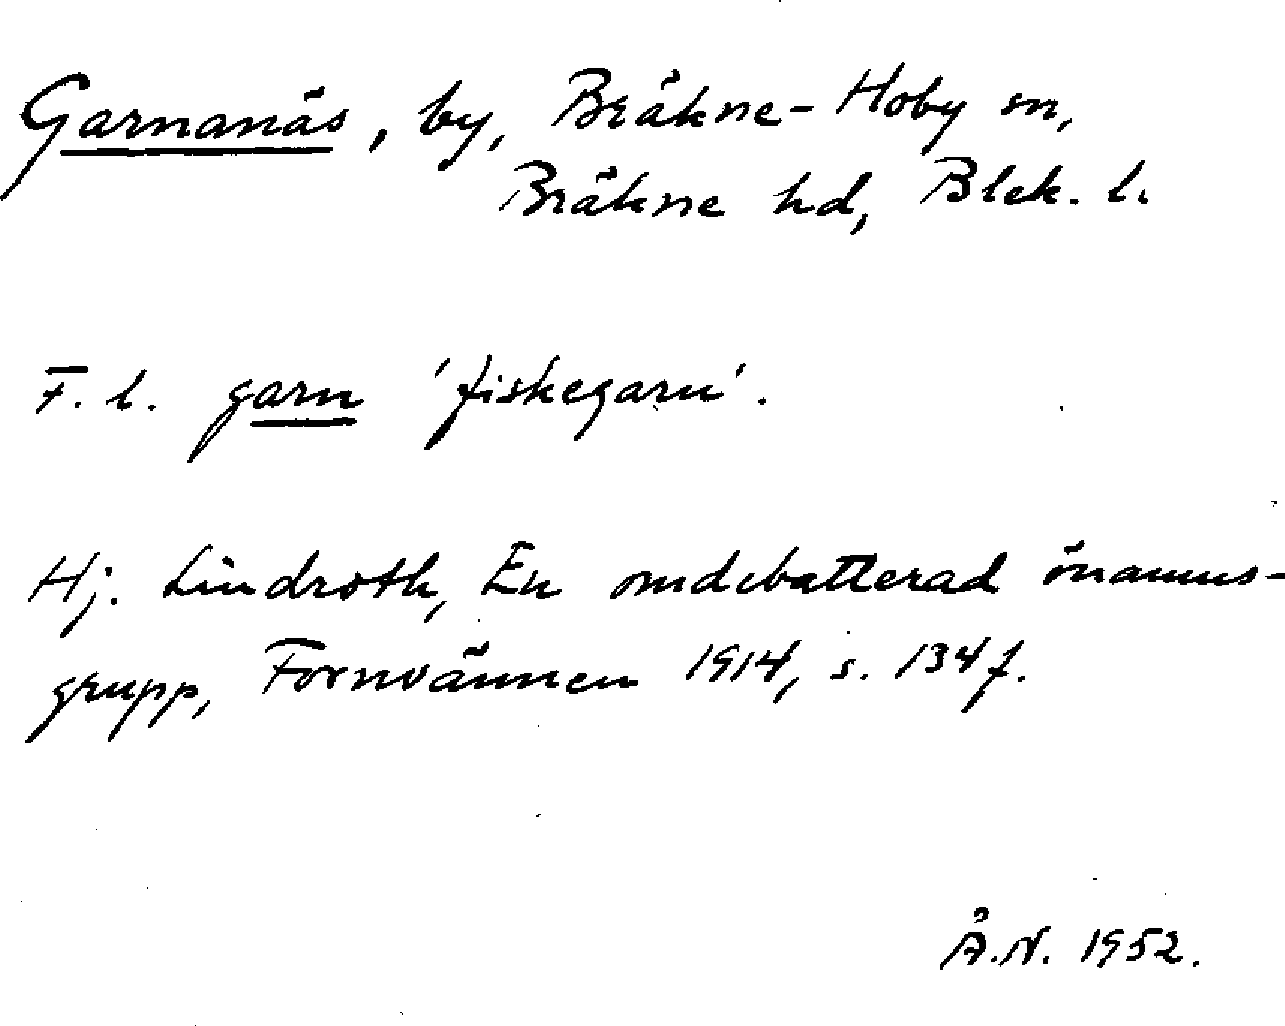 Garnanäs, by, Bräkne-Hoby sn,
Bräkne hd, Blek. l.
F. l. garn 'fiskegarn'.
Hj. Lindroth, En omdebatterad önamns-
grupp, Fornvännen 1914, s. 134 f.
Å.N. 1952.